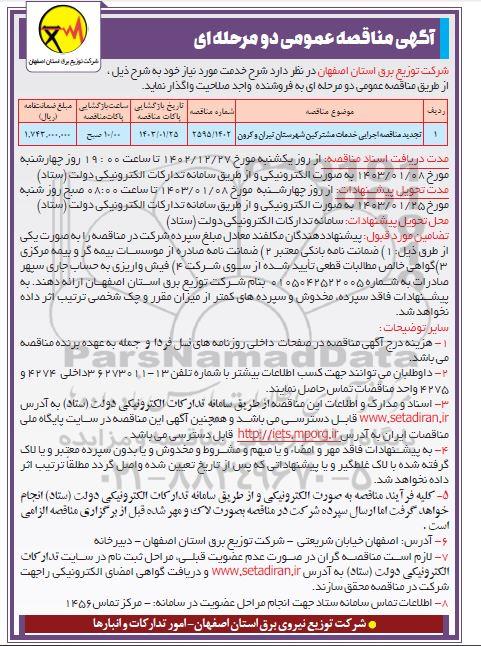 آگهی مناقصه عمومی دو مرحله ای
شرکت توزیع برق استان اصفهان
شرکت توزیع برق استان اصفهان در نظر دارد شرح خدمت مورد نیاز خود به شرح ذیل ،
از طریق مناقصه عمومی دو مرحله ای به فروشنده واجد صلاحیت واگذار نماید.
ردیف موضوع مناقصه شماره مناقصه تاریخ بازگشایی پاکات مناقصه ساعت بازگشایی پاکات مناقصه مبلغ ضمانتنامه (ریال)
۱ تجدید مناقصه اجرایی خدمات مشترکین شهرستان تیران و کرون ۲۵۹۵/۱۴۰۲ ۱۴۰۳/۰۱/۲۵ ۱۰/۰۰ صبح ۱,۷۴۳,۰۰۰,۰۰۰
مدت دریافت اسناد مناقصه: از روز یکشنبه مورخ ۱۴۰۲/۱۲/۲۷ تا ساعت ۰۰ : ۱۹ روز چهارشنبه
مورخ ۱۴۰۳/۰۱/۰۸ به صورت الکترونیکی و از طریق سامانه تدارکات الکترونیکی دولت (ستاد)
مدت تحویل پیشنهادات: از روز چهارشنبه مورخ ۱۴۰۳/۰۱/۰۸ تا ساعت ۰۸:۰۰ صبح روز شنبه
مورخ ۱۴۰۳/۰۱/۲۵ به صورت الکترونیکی و از طریق سامانه تدارکات الکترونیکی دولت (ستاد)
محل تحویل پیشنهادات: سامانه تدارکات الکترونیکی دولت (ستاد)
تضامین مورد قبول: پیشنهاددهندگان مکلفند معادل مبلغ سپرده شرکت در مناقصه را به صورت یکی
از طرق ذیل: ۱) ضمانت نامه بانکی معتبر ۲) ضمانت نامه صادره از موسسات بیمه گر و بیمه مرکزی
۳)گواهی خالص مطالبات قطعی تأیید شده از سوی شرکت ۴) فیش واریزی به حساب جاری سپهر
صادرات به شماره ۰۱۰۵۰۴۲۵۲۲۰۰۵ بنام شرکت توزیع برق استان اصفهان ارائه دهند. به
پیشنهادات فاقد سپرده، مخدوش و سپرده های کمتر از میزان مقرر و چک شخصی ترتیب اثر داده
نخواهد شد.
سایر توضیحات :
۱- هزینه درج آگهی مناقصه در صفحات داخلی روزنامه های نسل فردا و جمله به عهده برنده مناقصه
می باشد.
۲- داوطلبان می توانند جهت کسب اطلاعات بیشتر با شماره تلفن ۱۳-۳۶۲۷۳۰۱۱ داخلی ۴۲۷۴ و
۴۲۷۵ واحد مناقصات تماس حاصل نمایند.
۳- اسناد و مدارک و اطلاعات این مناقصه از طریق سامانه تدارکات الکترونیکی دولت (ستاد) به آدرس
www.setadiran.ir قابل دسترسی می باشد و همچنین آگهی این مناقصه در سایت پایگاه ملی
مناقصات ایران به آدرس http://iets.mporg.ir قابل دسترسی می باشد.
۴- به پیشنهادات فاقد مهر و امضاء و یا مبهم و مشروط و مخدوش و یا بدون سپرده معتبر و یا بلاک
گرفته شده با لاک غلطگیر و یا پیشنهاداتی که پس از تاریخ تعیین شده واصل گردد مطلقاً ترتیب اثر
داده نخواهد شد.
۵- کلیه فرآیند مناقصه به صورت الکترونیکی و از طریق سامانه تدارکات الکترونیکی دولت (ستاد) انجام
خواهد گرفت اما ارسال سپرده شرکت در مناقصه بصورت لاک و مهر شده قبل از برگزاری مناقصه الزامی
است .
۶- آدرس: اصفهان خیابان شریعتی - شرکت توزیع برق استان اصفهان - دبیرخانه
۷- لازم است مناقصه گران در صورت عدم عضویت قبلی، مراحل ثبت نام در سایت تدارکات
الکترونیکی دولت (ستاد) به آدرس www.setadiran.ir و دریافت گواهی امضای الکترونیکی را جهت
شرکت در مناقصه محقق سازند.
۸- اطلاعات تماس سامانه ستاد جهت انجام مراحل عضویت در سامانه: - مرکز تماس ۱۴۵۶
شرکت توزیع نیروی برق استان اصفهان - امور تدارکات و انبارها
ParsNamadData
۰۲۱-۸۸۳۴۹۶۷۰-۵